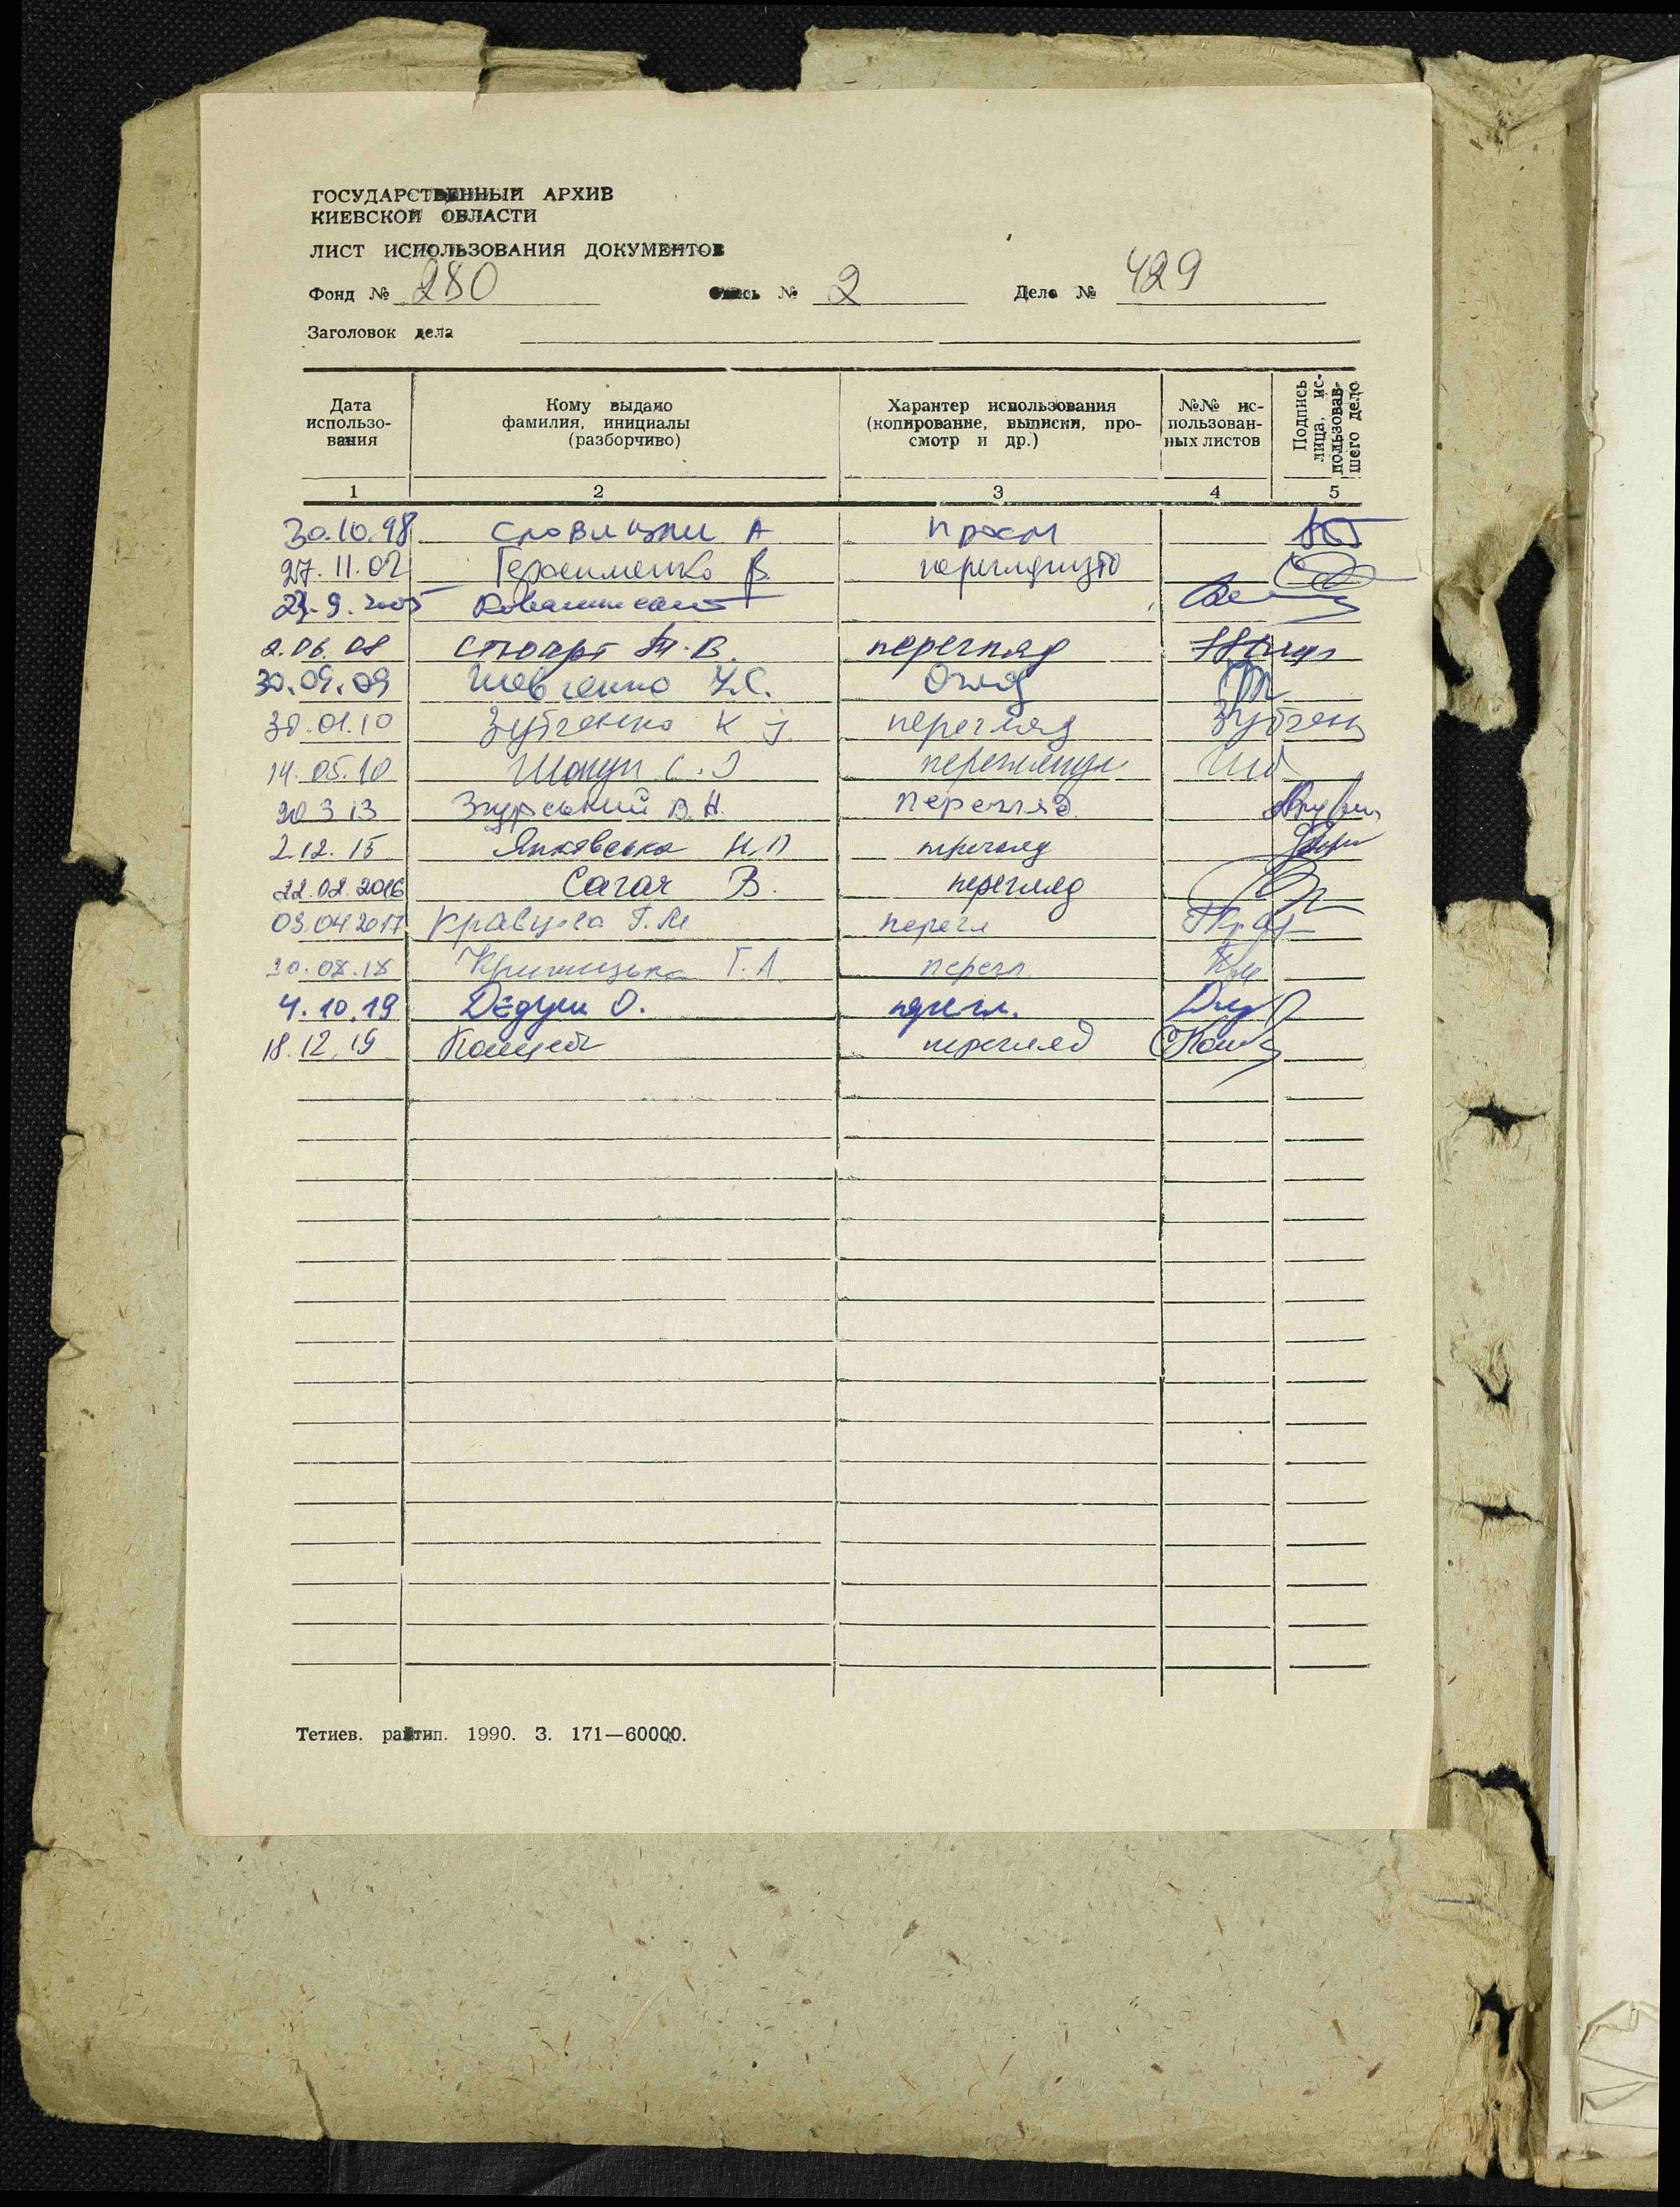 ГОСУДАРСТВЕННЫЙ АРХИВ
КИЕВСКОЙ ОБЛАСТИ
ЛИСТ ИСПОЛЬЗОВАНИЯ ДОКУМЕНТОВ
Фонд № 280 Опись № 2 Дело № 429
Заголовок дела
Дата использо-вания
Кому выдано фамилия, инициалы (разборчиво)
Характер использования (копирование, выписки, про-смотр и др.)
№№ ис-пользован-ных листов
Подпись лица, ис-пользовав-шего дело
1 2 3 4 5
30.10.98 А просм
27.11.02 Герасименко В. переглянуто
9.2005
2.06.08 Стюарт Т.В. перегляд
30.09.09 Шевченко Огляд
30.01.10 Зубченко К перегляд
14.05.10
20 3 13 Згурський В.Н. Перегляд
2.12.15 Янковська Н.П перегляд
22.02.2016 Сагач В. перегляд
03.04.2017 Кравцова Г.М перегл
Крижицька Г.А перегл
4.10.19 О. перегл.
18.12.19 перегляд
Тетиев. райтип. 1990. З. 171—60000.